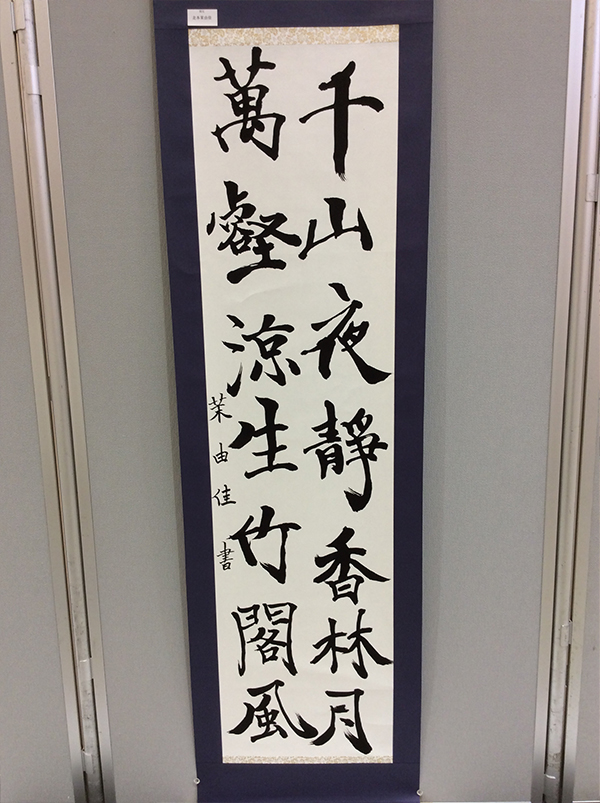 千山夜靜香林月
萬壑涼生竹閣風
茉由佳書